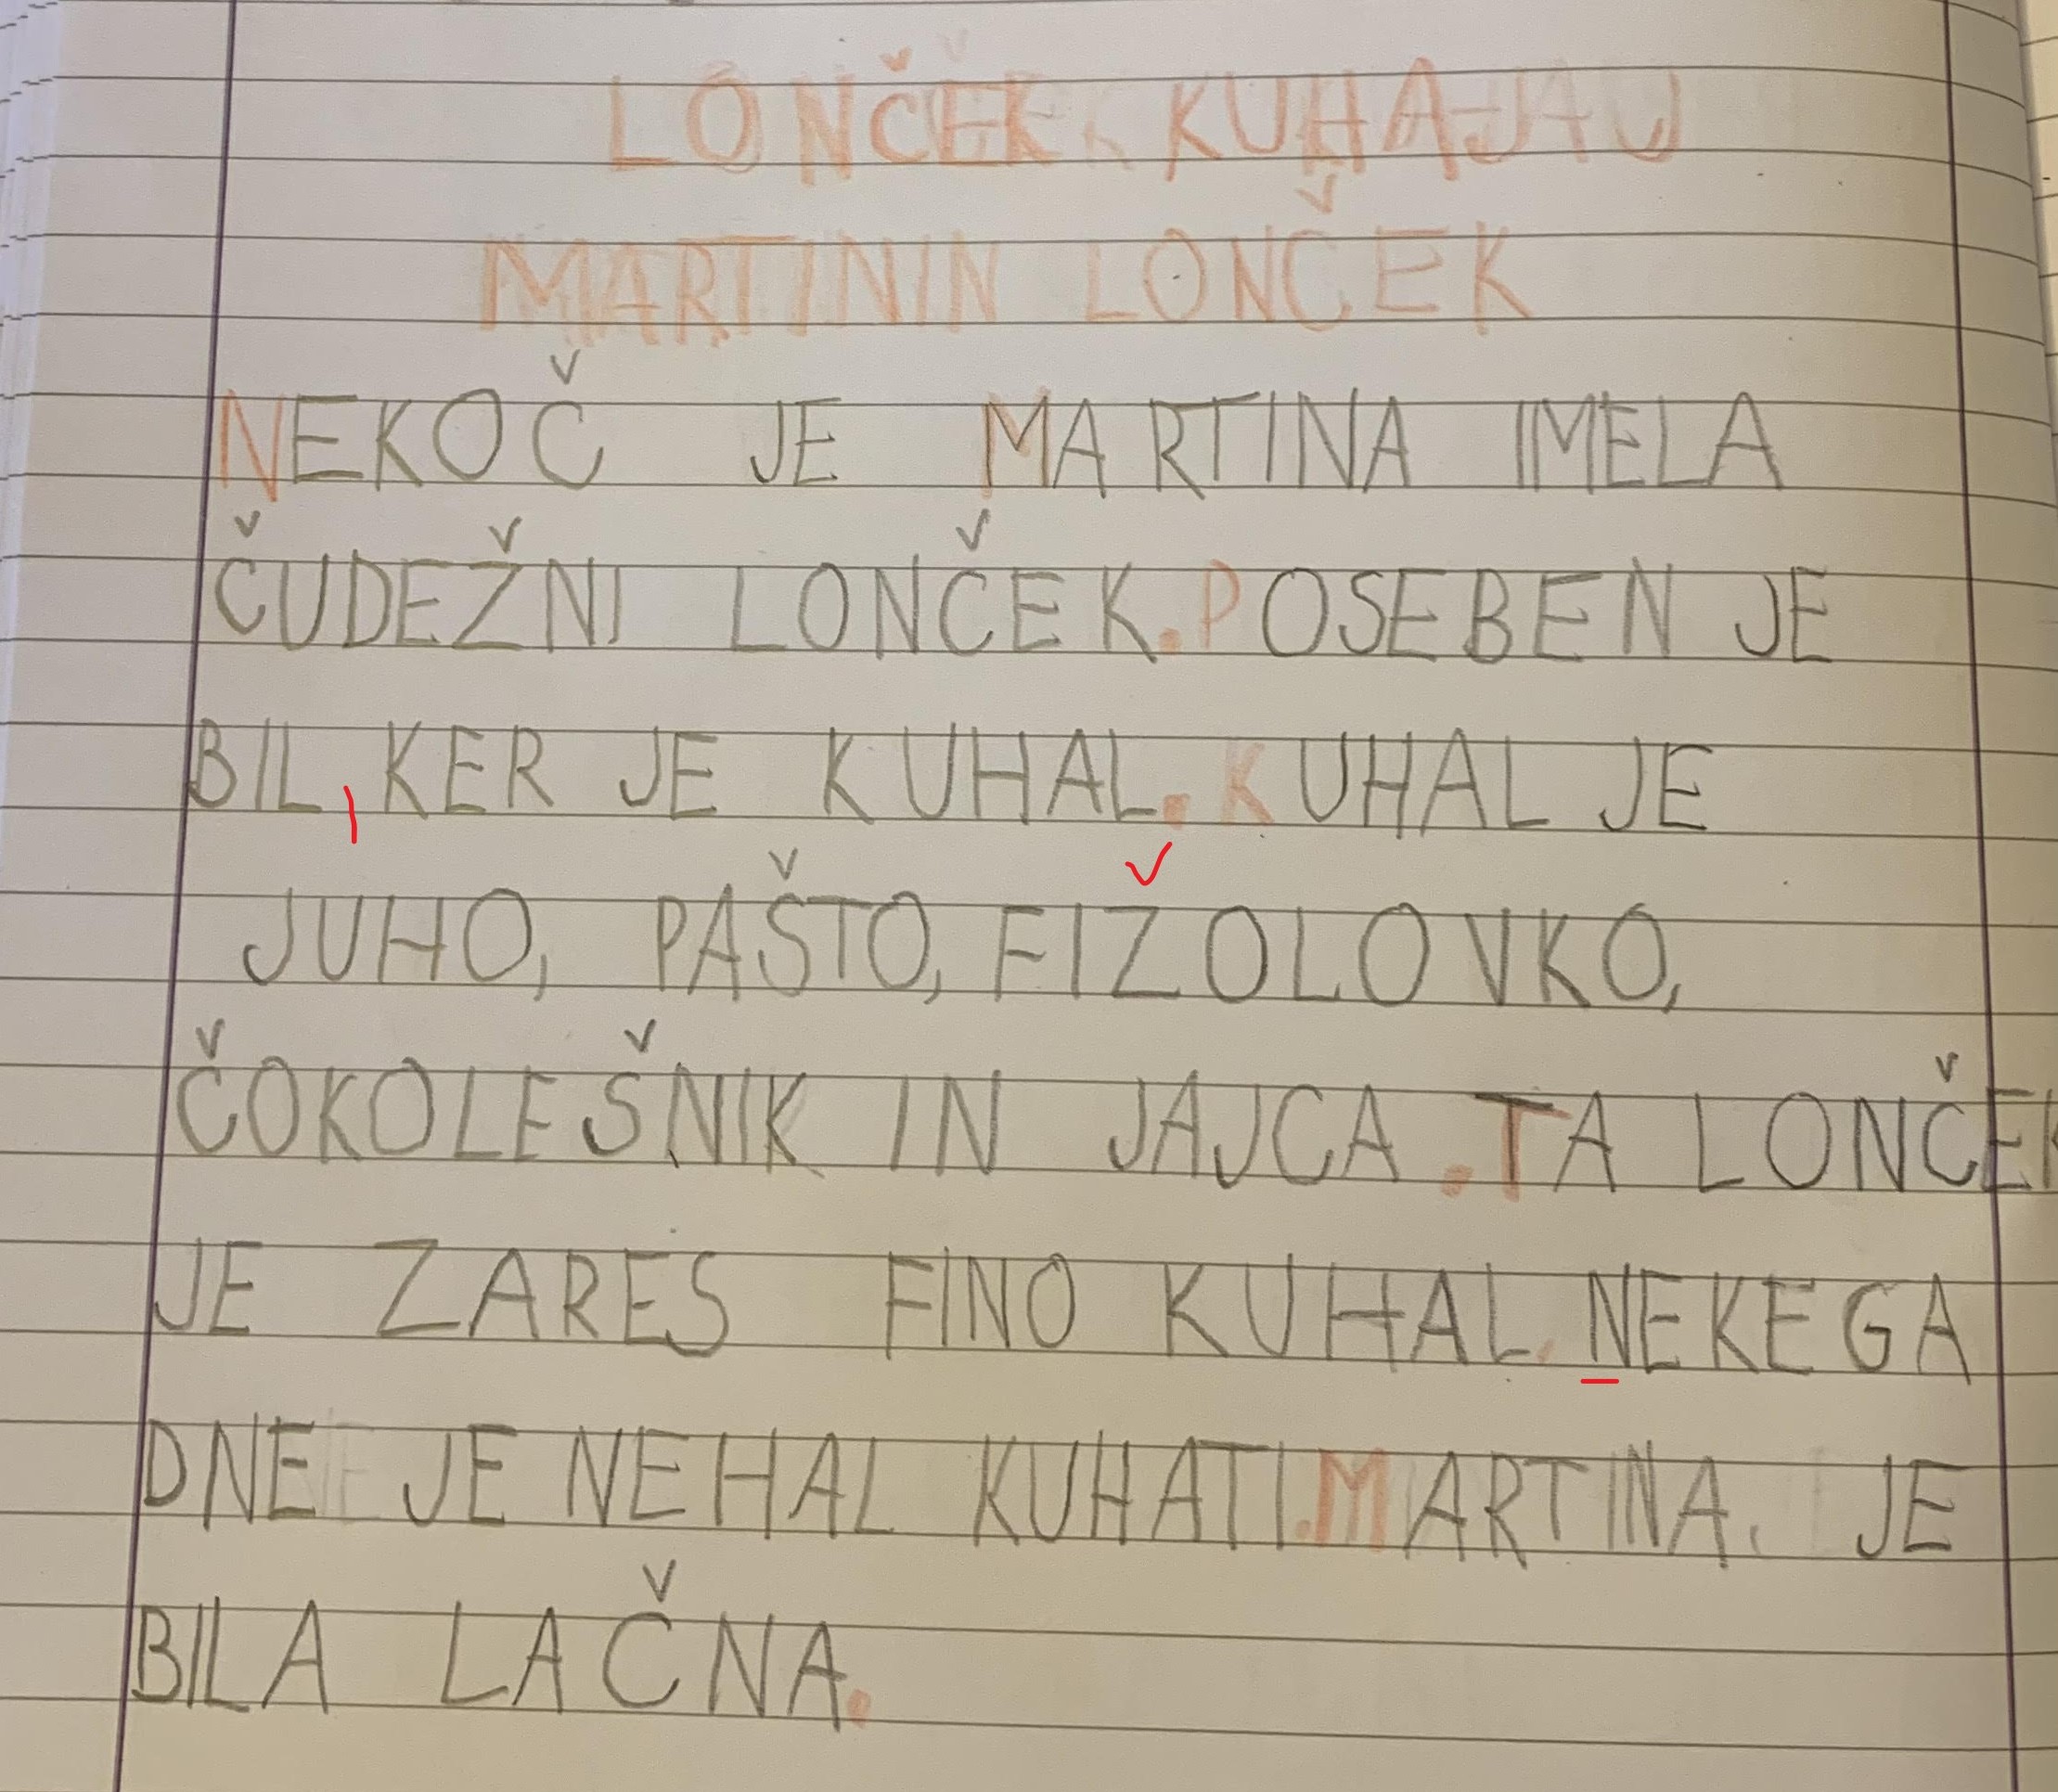 LONČEK KUHAJ
MARTININ LONČEK
NEKOČ JE MARTINA IMELA
ČUDEŽNI LONČEK. POSEBEN JE
BIL, KER JE KUHAL. KUHAL JE
JUHO, PAŠTO, FIŽOLOVKO,
ČOKOLEŠNIK IN JAJCA. TA LONČEK
JE ZARES FINO KUHAL. NEKEGA
DNE JE NEHAL KUHATI. MARTINA. JE
BILA LAČNA.